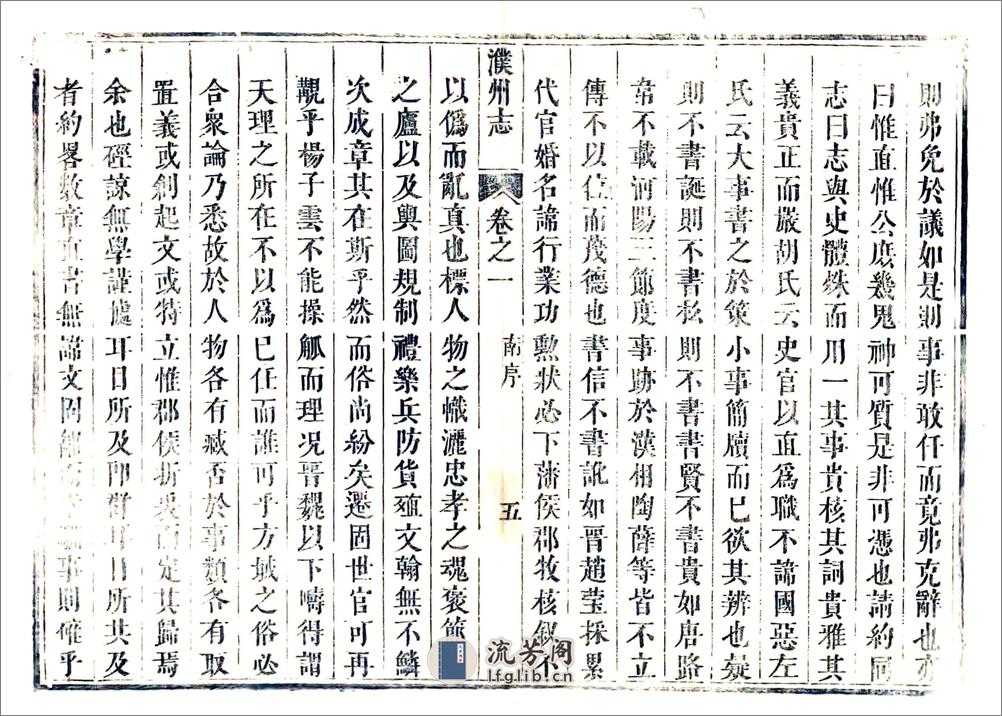 則弗免於議如是則事非敢仟而竟弗克辭也亦
曰惟直惟公庶幾鬼神可質是非可憑也請約同
志曰志與史體殊而用一其事貴核其詞貴雅其
義貴正而嚴胡氏云史官以直爲職不諱國惡左
氏云大事書之於策小事簡牘而已欲其辨也疑
則不書誕則不書核則不書書賢不書貴如唐路
韋不載河陽三節度事跡於漢相陶薛等皆不立
傳不以位而茂德也書信不書訛如晋趙莹採累
代官婚名諱行業功勲狀必下藩侯郡牧核
濮州志
卷之一
南序
五
以僞而亂真也標人物之幟灑忠孝之魂褒
之廬以及輿圖規制禮樂兵防貨殖文翰無不鱗
次成章其在斯乎然而俗尚紛矣遷固世官可再
覩乎楊子雲不能操觚而理况晋魏以下嚋得謂
天理之所在不以爲巳任而誰可乎方域之俗必
合衆論乃悉故於人物各有臧否於事類各有取
置義或創起文或特立惟郡侯折衷而定其歸焉
余也硜諒無學謹據耳目所及耳目所共及
者約畧敘章直書無諱文固事則僱乎
流芳阁
lfglib.cn